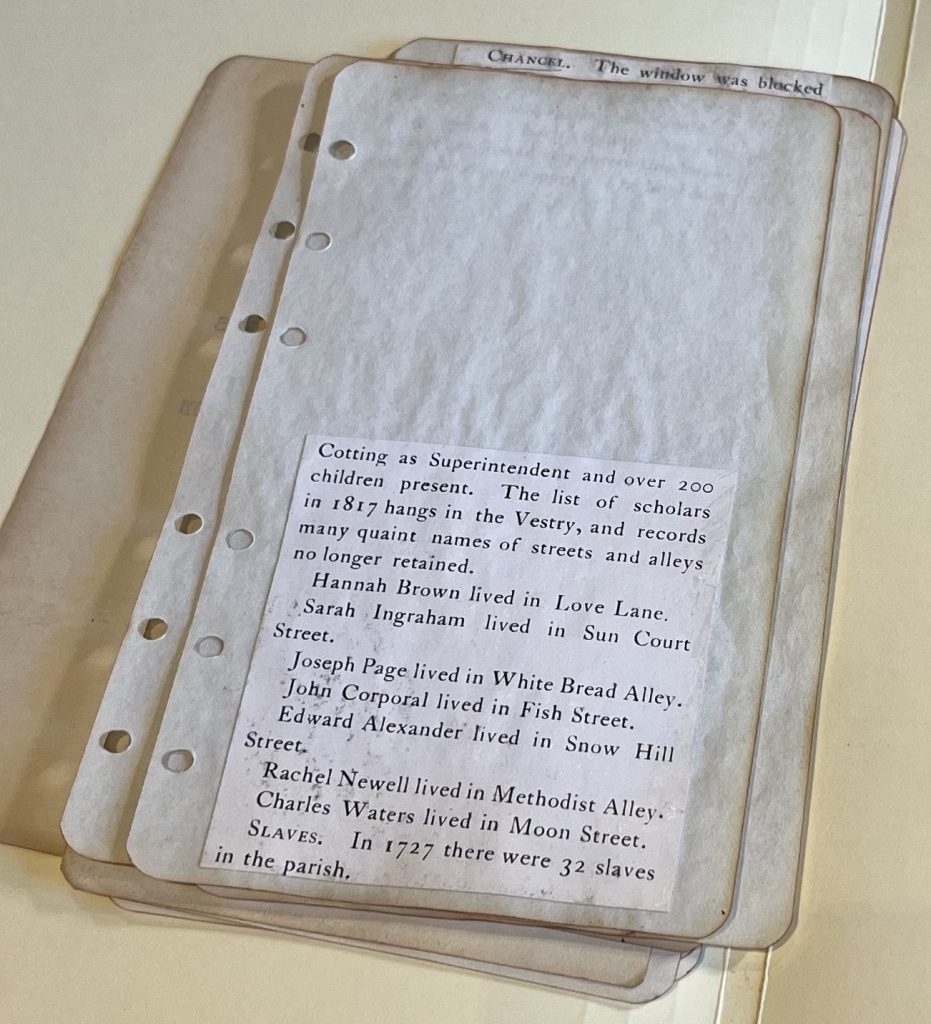 CHANCEL. The window was blocked
Cotting as Superintendent and over 200
children present. The list of scholars
in 1817 hangs in the Vestry, and records
many quaint names of streets and alleys
no longer retained.
Hannah Brown lived in Love Lane.
Sarah Ingraham lived in Sun Court
Street.
Joseph Page lived in White Bread Alley.
John Corporal lived in Fish Street.
Edward Alexander lived in Snow Hill
Street.
Rachel Newell lived in Methodist Alley.
Charles Waters lived in Moon Street.
SLAVES. In 1727 there were 32 slaves
in the parish.